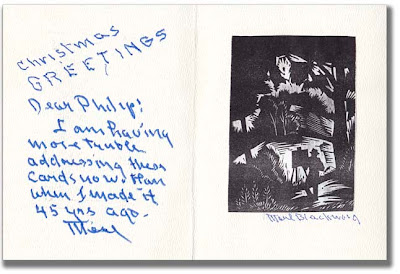 Christmas
GREETINGS
Dear Philip:
I am having
more trouble
addressing these
cards now than
when I made it
45 yrs ago.
Merl
Merl Blackwood